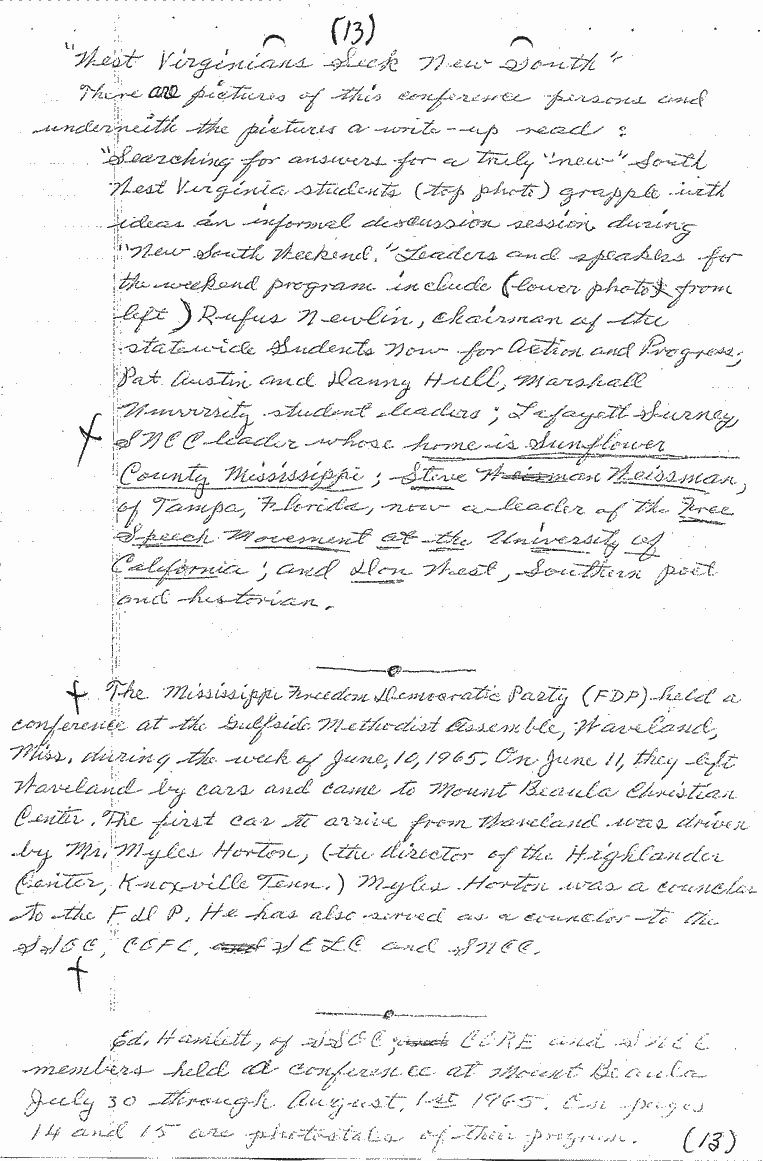 (13)
"West Virginians Seek New South"
There are pictures of this conference persons and
underneith the pictures a write-up read :
"Searching for answers for a truly "new" South
West Virginia students (top photo) grapple with
ideas an informal discussion session during
"New South Weekend." Leaders and speakers for
the weekend program include (lower photo) from
left) Rufus Newlin, chairman of the
statewide Sudents Now for Action and Progress;
Pat Austin and Danny Hull, Marshall
University student leaders; Lafayett Surney,
SNCC leader whose home is Sunflower
County Mississippi; Steve Weissman,
of Tampa, Florida, now a leader of the Free
Speech Movement at the University of
California; and Don West, Southern poet
and historian.
The Mississippi Freedom Democratic Party (FDP) held a
conference at the Gulfside Methodist Assemble, Waveland,
Miss. during the week of June, 10, 1965. On June 11, they left
Waveland by cars and came to Mount Beaula Christian
Center. The first car to arrive from Waveland was driven
by Mr. Myles Horton, (the director of the Highlander
Center, Knoxville Tenn.) Myles Horton was a counclor
to the FDP. He has also served as a counclor to the
SSOC, COFC, SCLC and SNCC.
Ed. Hamlett, of SSOC; CORE and SNCC
members held a conference at Mount Beaula
July 30 through August, 1st 1965. On pages
14 and 15 are photostats of their program. (13)